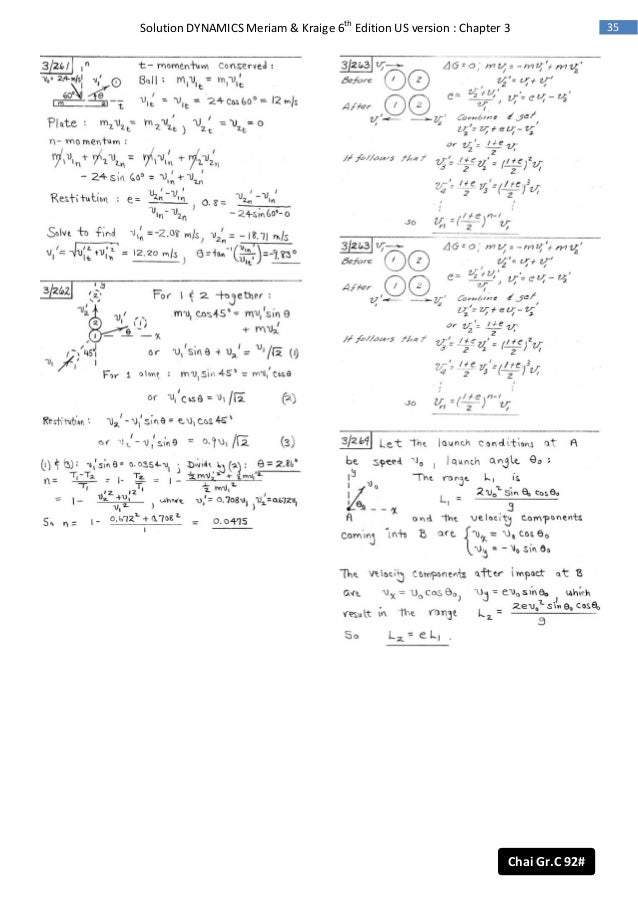 Solution DYNAMICS Meriam & Kraige 6th Edition US version : Chapter 3
35
3/261 n t-momentum conserved :
v₀ = 24 m/s v₁' ① Ball : m₁v₁t = m₁v₁t'
60° θ t v₁t' = v₁t = 24 cos 60° = 12 m/s
m ②
Plate : m₂v₂t = m₂v₂t' , v₂t' = v₂t = 0
n-momentum :
m₁v₁n + m₂v₂n = m₁v₁n' + m₂v₂n'
- 24 sin 60° = v₁n' + v₂n'
Restitution : e = (v₂n' - v₁n')/(v₁n - v₂n) , 0.8 = (v₂n' - v₁n')/(-24 sin 60° - 0)
Solve to find v₁n' = -2.08 m/s, v₂n' = -18.71 m/s
v₁' = √(v₁t'² + v₁n'²) = 12.20 m/s , θ = tan⁻¹(v₁n'/v₁t') = -9.83°
3/262 y For 1 & 2 together :
v₂' v₁' mv₁ cos 45° = mv₁' sin θ
θ x + mv₂'
v₁ 45° or v₁' sin θ + v₂' = v₁/√2 (1)
For 1 alone : mv₁ sin 45° = mv₁' cos θ
or v₁' cos θ = v₁/√2 (2)
Restitution : v₂' - v₁' sin θ = e v₁ cos 45°
or v₂' - v₁' sin θ = 0.9 v₁/√2 (3)
(1) & (3) : v₁' sin θ = 0.0354 v₁ ; Divide by (2) : θ = 2.86°
n = (T₁ - T₂)/T₁ = 1 - T₂/T₁ = 1 - (½mv₂'² + ½mv₁'²)/(½mv₁²)
= 1 - (v₂'² + v₁'²)/v₁² , where v₁' = 0.708v₁ , v₂' = 0.672v₁
So n = 1 - (0.672² + 0.708²)/1 = 0.0475
3/263 v₁ ΔG = 0 ; mv₁ = -mv₁' + mv₂'
Before ① ② v₂' = v₁ + v₁'
e = (v₂' + v₁')/v₁ , v₁' = ev₁ - v₂'
After ① ②
v₁' v₂' Combine & get
v₂' = v₁ + ev₁ - v₂'
or v₂' = (1+e)/2 v₁
It follows that v₃' = (1+e)/2 v₂' = ((1+e)/2)² v₁
v₄' = (1+e)/2 v₃' = ((1+e)/2)³ v₁
⋮ ⋮
so vₙ = ((1+e)/2)ⁿ⁻¹ v₁
3/263 v₁ ΔG = 0 ; mv₁ = -mv₁' + mv₂'
Before ① ② v₂' = v₁ + v₁'
e = (v₂' + v₁')/v₁ , v₁' = ev₁ - v₂'
After ① ②
v₁' v₂' Combine & get
v₂' = v₁ + ev₁ - v₂'
or v₂' = (1+e)/2 v₁
It follows that v₃' = (1+e)/2 v₂' = ((1+e)/2)² v₁
v₄' = (1+e)/2 v₃' = ((1+e)/2)³ v₁
⋮ ⋮
so vₙ = ((1+e)/2)ⁿ⁻¹ v₁
3/264 Let the launch conditions at A
be speed v₀ , launch angle θ₀ :
y v₀ The range L₁ is
θ₀ x L₁ = 2v₀² sin θ₀ cos θ₀/g
A and the velocity components
coming into B are { vₓ = v₀ cos θ₀
vy = - v₀ sin θ₀
The velocity components after impact at B
are vₓ = v₀ cos θ₀, vy = ev₀ sin θ₀ , which
result in the range L₂ = 2ev₀² sin θ₀ cos θ₀/g
So L₂ = eL₁ .
Chai Gr.C 92#